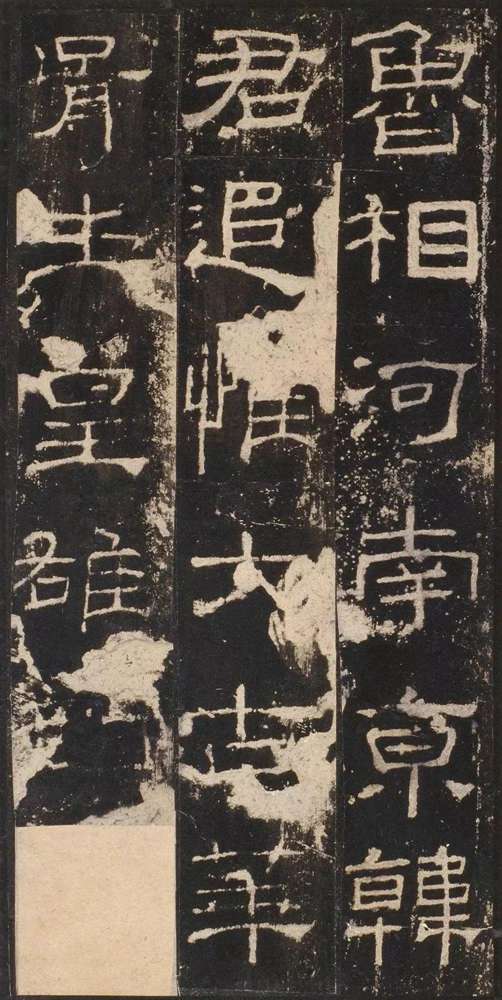 魯相河南京韓
君追惟大古華
胥生皇雄